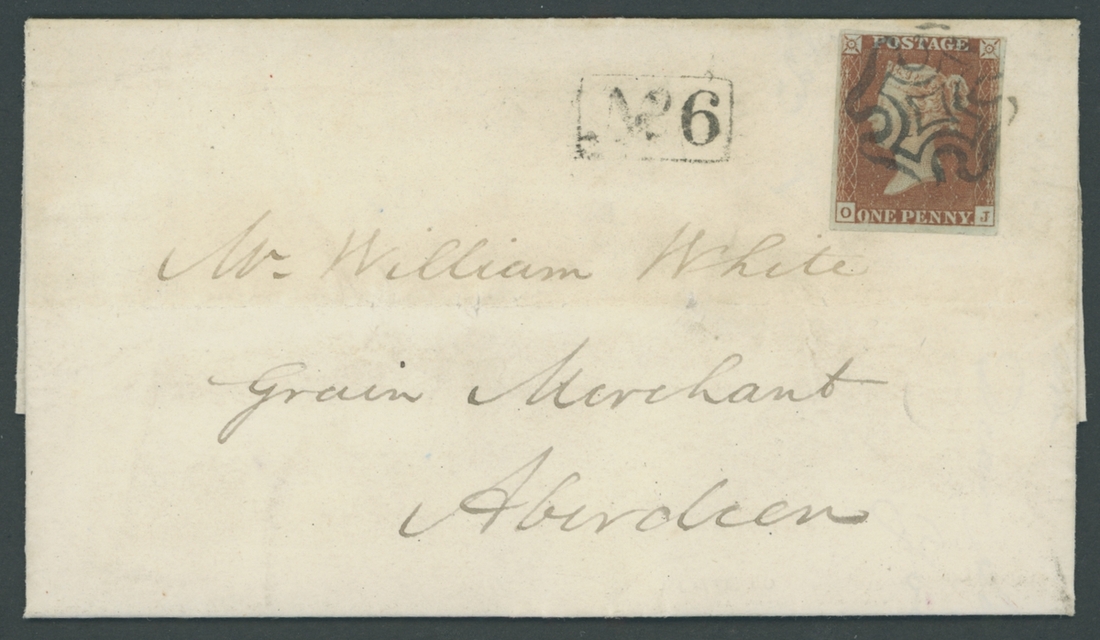 POSTAGE
No 6
O ONE PENNY J
Mr. William White
Grain Merchant
Aberdeen